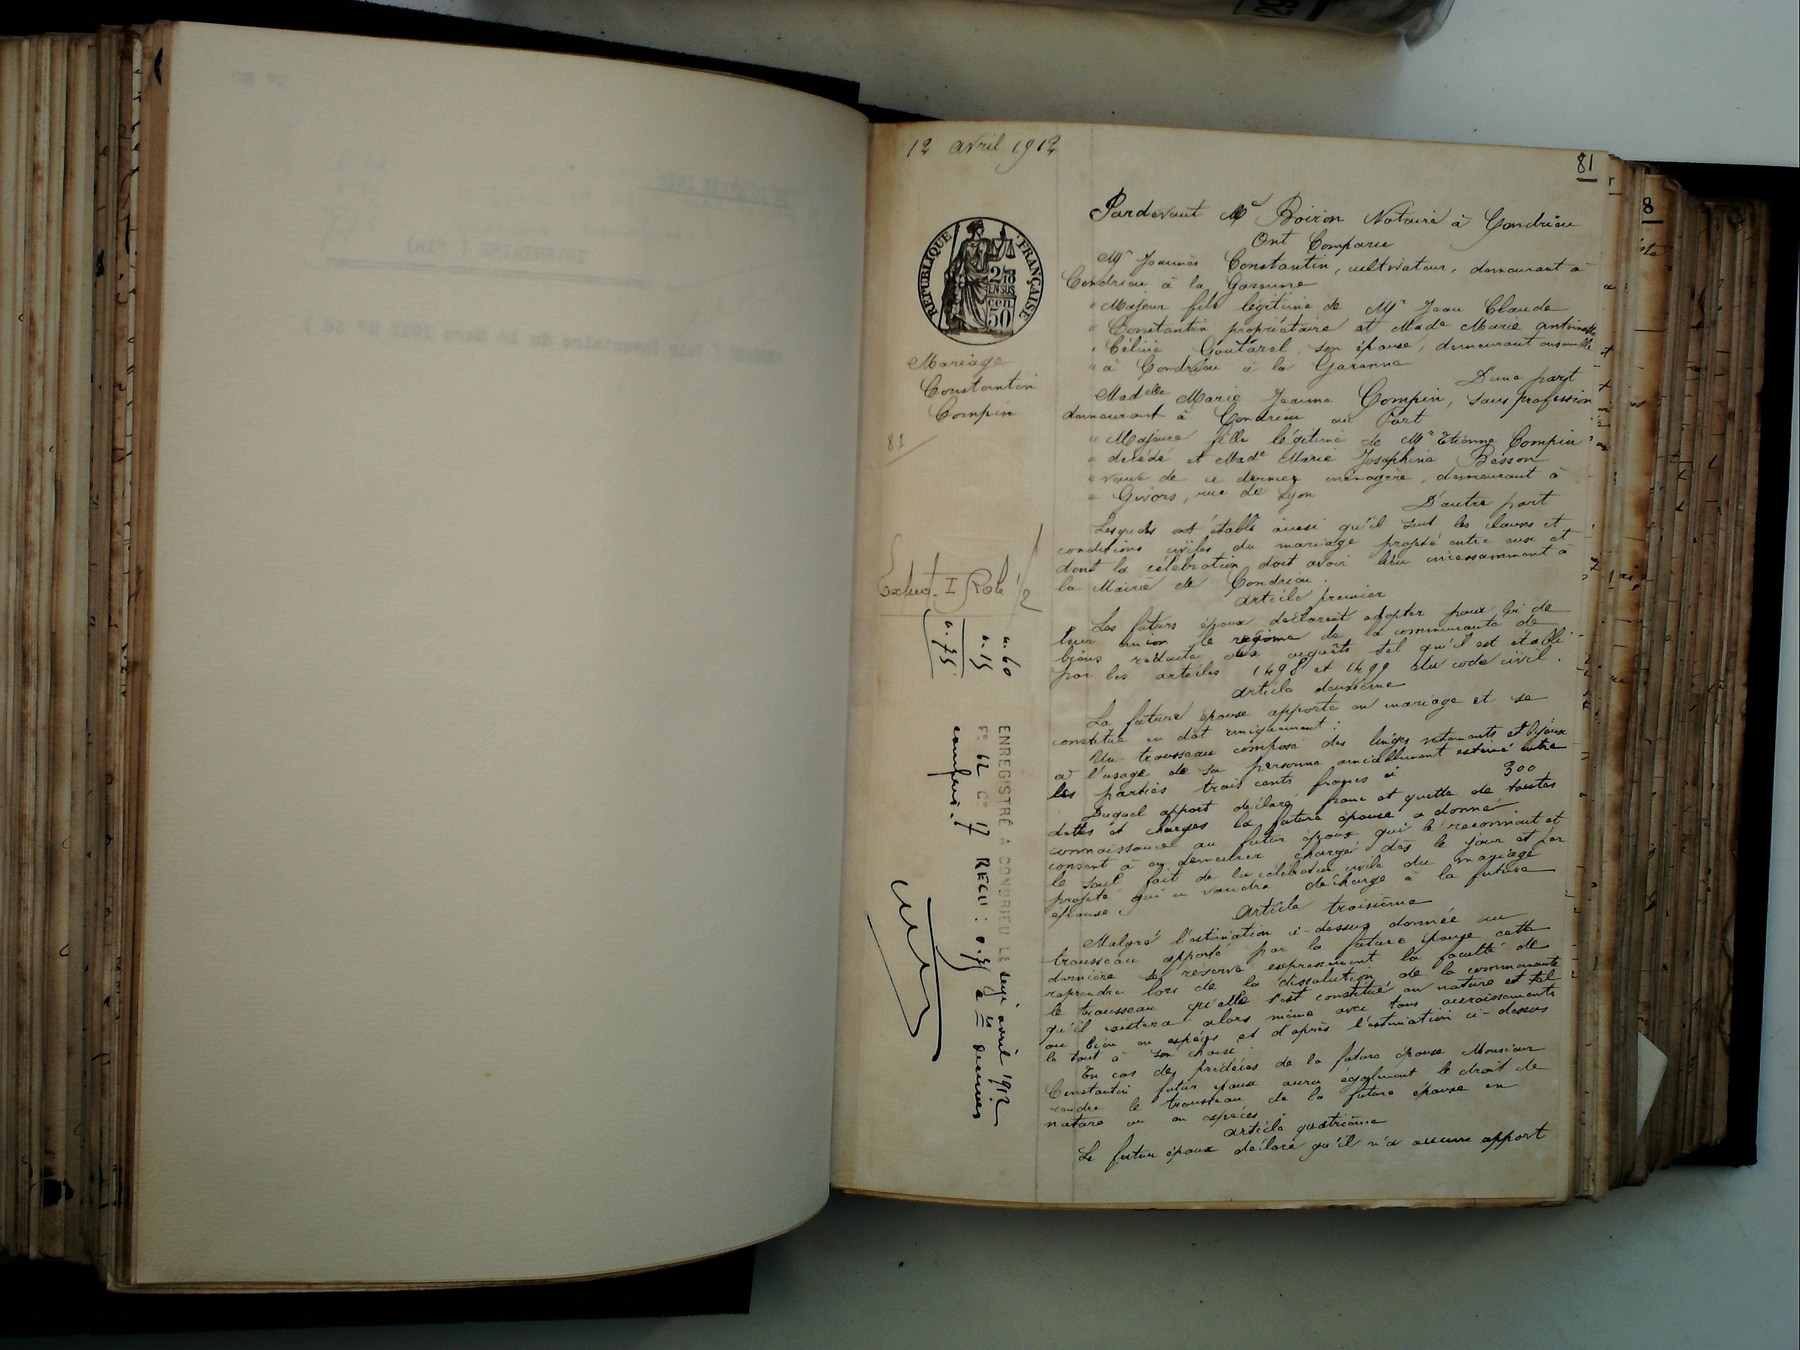 12 avril 1912
81
RÉPUBLIQUE FRANÇAISE
2/10
EN SUS
cen
50
Mariage
Constantin
Compin
81
Extrot. I Role 1/2
0.60
0.15
0.75
ENREGISTRÉ A CONDRIEU LE seize avril 1912
F° 62 C° 17 REÇU : 0.75
compris
Pardevant Me Boiron Notaire à Condrieu
Ont Comparu
Mr Joannès Constantin, cultivateur, demeurant à
Condrieu à la Garenne
" Majeur fils légitime de Mr Jean Claude
" Constantin propriétaire et Made Marie Antoinette
" Céline Goutarel son épouse, demeurant ensemble
" à Condrieu à la Garenne
D'une part
Madelle Marie Jeanne Compin, sans profession
demeurant à Condrieu au Port
" Majeure fille légitime de Mr Etienne Compin
" décédé et Made Marie Joséphine Besson
" veuve de ce dernier ménagère, demeurant à
" Givors, rue de Lyon
D'autre part
Lesquels ont établi ainsi qu'il suit les clauses et
conditions civiles du mariage projeté entre eux et
dont la célébration doit avoir lieu incessamment à
la Mairie de Condrieu.
Article premier
Les futurs époux déclarent adopter pour loi de
leur union le régime de la communauté de
biens réduite aux acquêts tel qu'il est établi
par les articles 1498 et 1499 du code civil.
Article deuxième
La future épouse apporte en mariage et se
constitue en dot uniquement :
Un trousseau composé des linges vêtements et bijoux
à l'usage de sa personne amiablement estimé entre
les parties trois cents francs ci 300
Duquel apport déclaré franc et quitte de toutes
dettes et charges la future épouse a donné
connaissance au futur époux qui le reconnait et
consent à en demeurer chargé dès le jour et par
le seul fait de la célébration civile du mariage
projeté qui en vaudra décharge à la future
épouse
Article troisième
Malgré l'estimation ci-dessus donnée au
trousseau apporté par la future épouse cette
dernière se réserve expressément la faculté de
reprendre lors de la dissolution de la communauté
le trousseau qu'elle s'est constitué en nature et tel
qu'il existera alors même avec tous accroissements
ou bien en espèces et d'après l'estimation ci-dessus
le tout à son choix
En cas de prédécès de la future épouse Monsieur
Constantin futur époux aura également le droit de
rendre le trousseau de la future épouse en
nature ou en espèces
Article quatrième
Le futur époux déclare qu'il n'a aucun apport